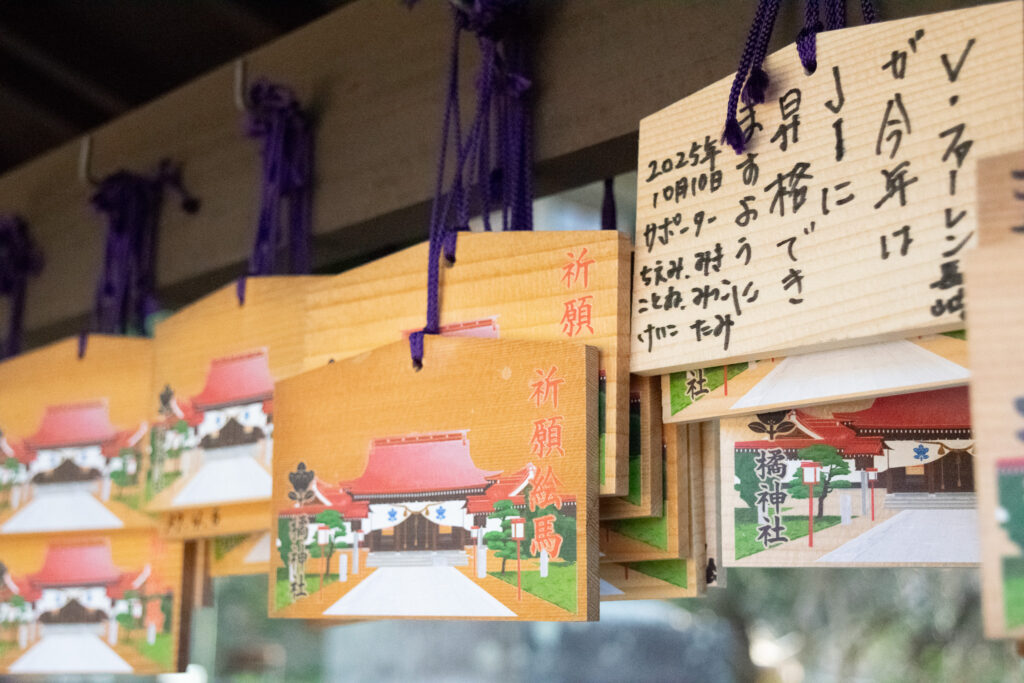 V・ファーレン長崎
が今年は
J1に
昇格でき
ますように
2025年
10月10日
サポーター
ちえみ、みき
ことね、みつこ
けいこ たみ
祈願
祈願絵馬
橘神社
神社
橘神社